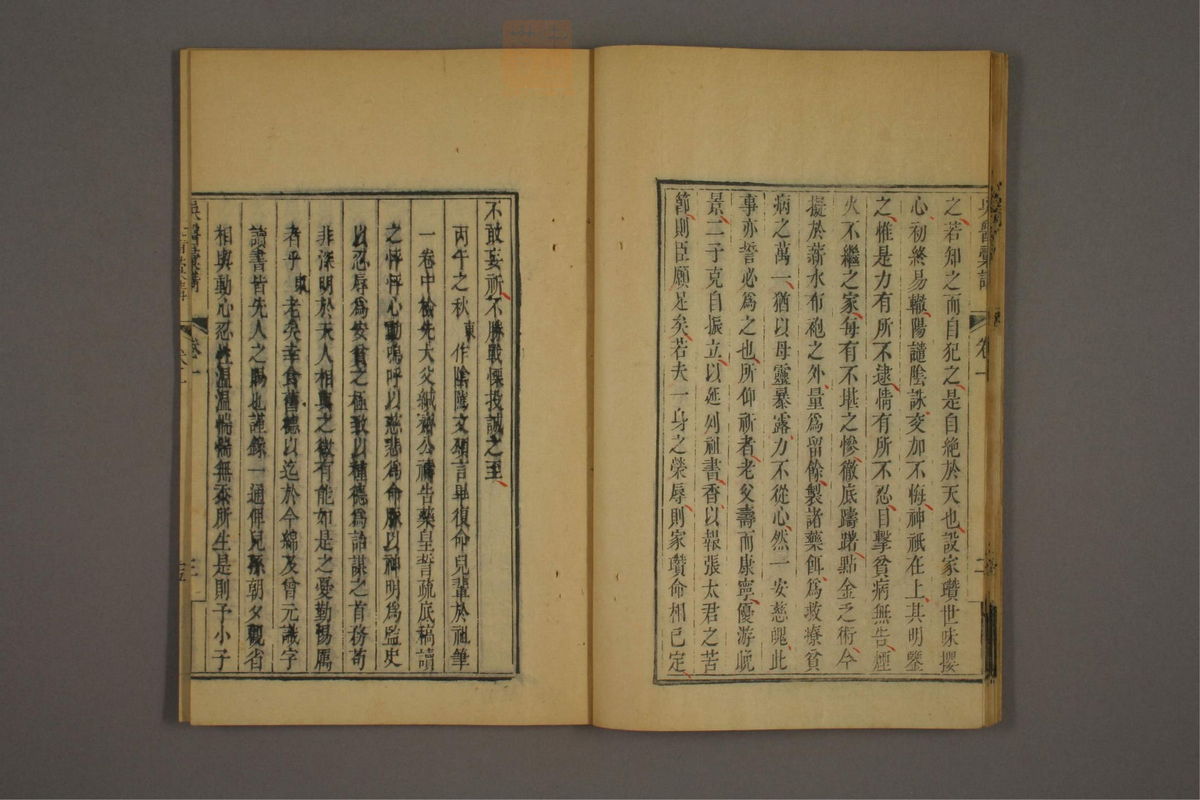 之若知之而自犯之是自絶於天也設家瓚世味攖
心初終易轍陽譴陰誅交加不悔神祇在上其明鑒
之惟是力有所不逮情有所不忍目擊貧病無告煙
火不繼之家每有不堪之慘徹底躊躇點金乏術今
擬於薪水布袍之外量爲留餘製諸藥餌爲救療貧
病之萬一猶以母靈暴露力不從心然一安慈魄此
事亦誓必爲之也所仰祈者老父壽而康寧優游晚
景二子克自振立以延列祖書香以報張太君之苦
節則臣願足矣若夫一身之榮辱則家瓚命相已定
卷一
不敢妄祈不勝戰慄投誠之至
丙午之秋東作陰隲文頌言畢復命兒輩於祖筆
一卷中檢先大父緘齋公禱告藥皇誓疏底稿讀
之怦怦心動嗚呼以慈悲爲命脉以神明爲監史
以忍辱爲安貧之極致以種德爲詒謀之首務苟
非深明於天人相與之微有能如是之憂勤惕厲
者乎東老矣幸食舊德以迄於今綿及曾元識字
讀書皆先人之賜也謹錄一通俾兒孫朝夕觀省
相與動心忍性温温惴惴無忝所生是則予小子
吳醫彙講
卷一